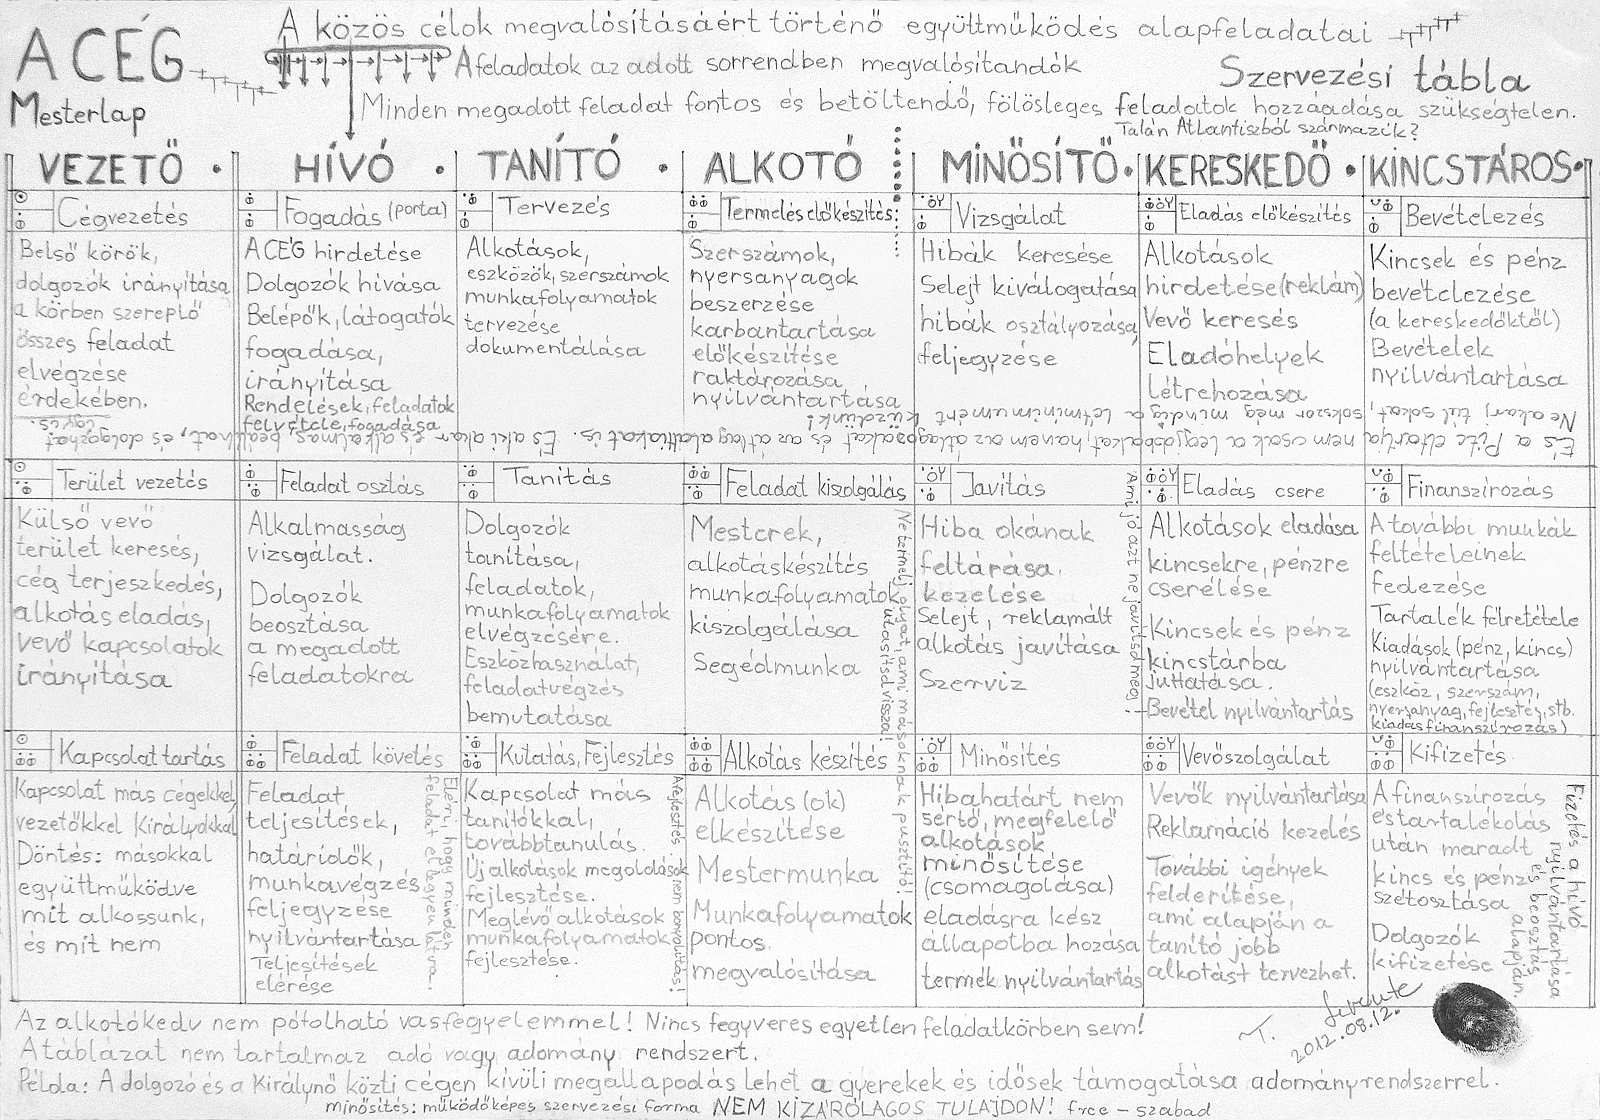 A CÉG
Mesterlap
A közös célok megvalósításáért történő együttműködés alapfeladatai
A feladatok az adott sorrendben megvalósítandók
Szervezési tábla
Minden megadott feladat fontos és betöltendő, fölösleges feladatok hozzáadása szükségtelen.
Talán Atlantiszból származik?
VEZETŐ
Cégvezetés
Belső körök,
dolgozók irányítása
a körben szereplő
összes feladat
elvégzése
érdekében.
Terület vezetés
Külső vevő
terület keresés,
cég terjeszkedés,
alkotás eladás,
vevő kapcsolatok
irányítása
Kapcsolat tartás
Kapcsolat más cégekkel
vezetőkkel Királyokkal
Döntés: másokkal
együttműködve
mit alkossunk,
és mit nem
HÍVÓ
Fogadás (porta)
A CÉG hirdetése
Dolgozók hívása
Belépők, látogatók
fogadása,
irányítása
Rendelések, feladatok
felvétele, fogadása
Feladat osztás
Alkalmasság
vizsgálat.
Dolgozók
beosztása
a megadott
feladatokra
Feladat követés
Feladat
teljesítések,
határidők,
munkavégzés
feljegyzése
nyilvántartása
Teljesítések
elérése
Elérni, hogy minden
feladat el legyen látva!
TANÍTÓ
Tervezés
Alkotások,
eszközök, szerszámok
munkafolyamatok
tervezése
dokumentálása
Tanítás
Dolgozók
tanítása,
feladatok,
munkafolyamatok
elvégzésére.
Eszközhasználat,
feladatvégzés
bemutatása
Kutatás, Fejlesztés
Kapcsolat más
tanítókkal,
továbbtanulás.
Új alkotások megoldások
fejlesztése.
Meglévő alkotások
munkafolyamatok
fejlesztése.
A fejlesztés nem bonyolítás!
ALKOTÓ
Termelés előkészítés:
Szerszámok,
nyersanyagok
beszerzése
karbantartása
előkészítése
raktározása
nyilvántartása
Feladat kiszolgálás
Mesterek,
alkotáskészítés
munkafolyamatok
kiszolgálása
Segédmunka
Ne termelj olyat, ami másoknak pusztító!
utasítsd vissza!
Alkotás készítés
Alkotás (ok)
elkészítése
Mestermunka
Munkafolyamatok
pontos
megvalósítása
MINŐSÍTŐ
Vizsgálat
Hibák keresése
Selejt kiválogatása
hibák osztályozása,
feljegyzése
Javítás
Hiba okának
feltárása.
kezelése
Selejt, reklamált
alkotás javítása
Szerviz
Ami jó azt ne javítsd meg!
Minősítés
Hibahatárt nem
sértő, megfelelő
alkotások
minősítése
(csomagolása)
eladásra kész
állapotba hozása
termék nyilvántartás
KERESKEDŐ
Eladás előkészítés
Alkotások
hirdetése (reklám)
Vevő keresés
Eladóhelyek
létrehozása
Eladás csere
Alkotások eladása
kincsekre, pénzre
cserélése
Kincsek és pénz
kincstárba
juttatása.
Bevétel nyilvántartás
Vevőszolgálat
Vevők nyilvántartása
Reklamáció kezelés
További igények
felderítése,
ami alapján a
tanító jobb
alkotást tervezhet.
KINCSTÁROS
Bevételezés
Kincsek és pénz
bevételezése
(a kereskedőktől)
Bevételek
nyilvántartása
Finanszírozás
A további munkák
feltételeinek
fedezése
Tartalék félretétele
Kiadások (pénz, kincs)
nyilvántartása
(eszköz, szerszám,
nyersanyag, fejlesztés, stb.
kiadás finanszírozás)
Kifizetés
A finanszírozás
és tartalékolás
után maradt
kincs és pénz
szétosztása
Dolgozók
kifizetése
Fizetés a hívó
nyilvántartása
és beosztás
alapján.
Ne akarj túl sokat, sokszor még mindég a létminimumért küzdünk!
És a Pite eltartja nem csak a legjobbakat, hanem az átlagosakat és az átlag alattiakat is. És aki akar és alkalmas, beállhat, és dolgozhat
úgy is.
Az alkotókedv nem pótolható vasfegyelemmel! Nincs fegyveres egyetlen feladatkörben sem!
A táblázat nem tartalmaz adó vagy adomány rendszert.
Példa: A dolgozó és a Királynő közti cégen kívüli megállapodás lehet a gyerekek és idősek támogatása adományrendszerrel.
minősítés: működőképes szervezési forma NEM KIZÁRÓLAGOS TULAJDON! free - szabad
T. Levente
2012.08.12.